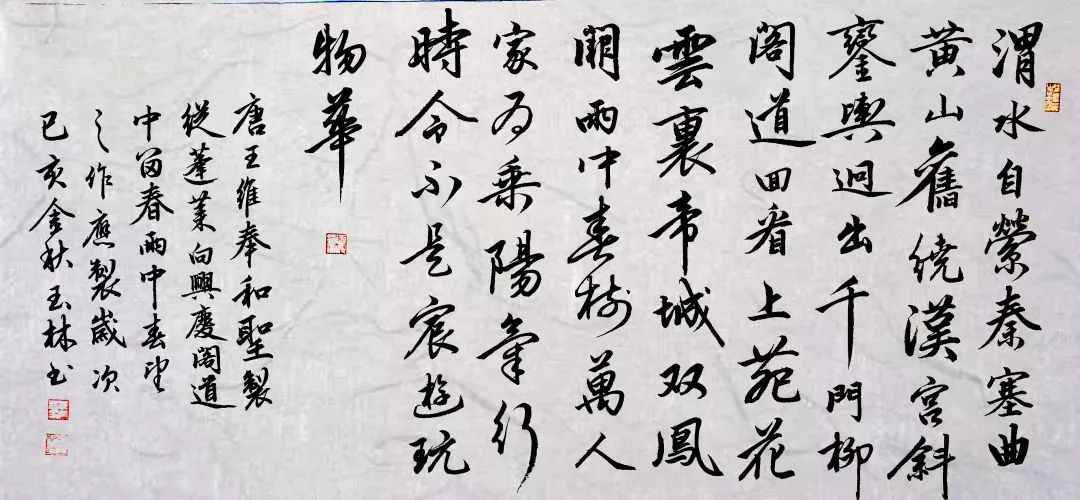 渭水自縈秦塞曲
黃山舊繞漢宮斜
鑾輿迥出千門柳
閣道回看上苑花
雲裏帝城双鳳
闕雨中春樹萬人
家为乘陽氣行
時令不是宸遊玩
物華
唐王維奉和聖製
從蓬萊向興慶閣道
中留春雨中春望
之作應製歲次
己亥金秋玉林书